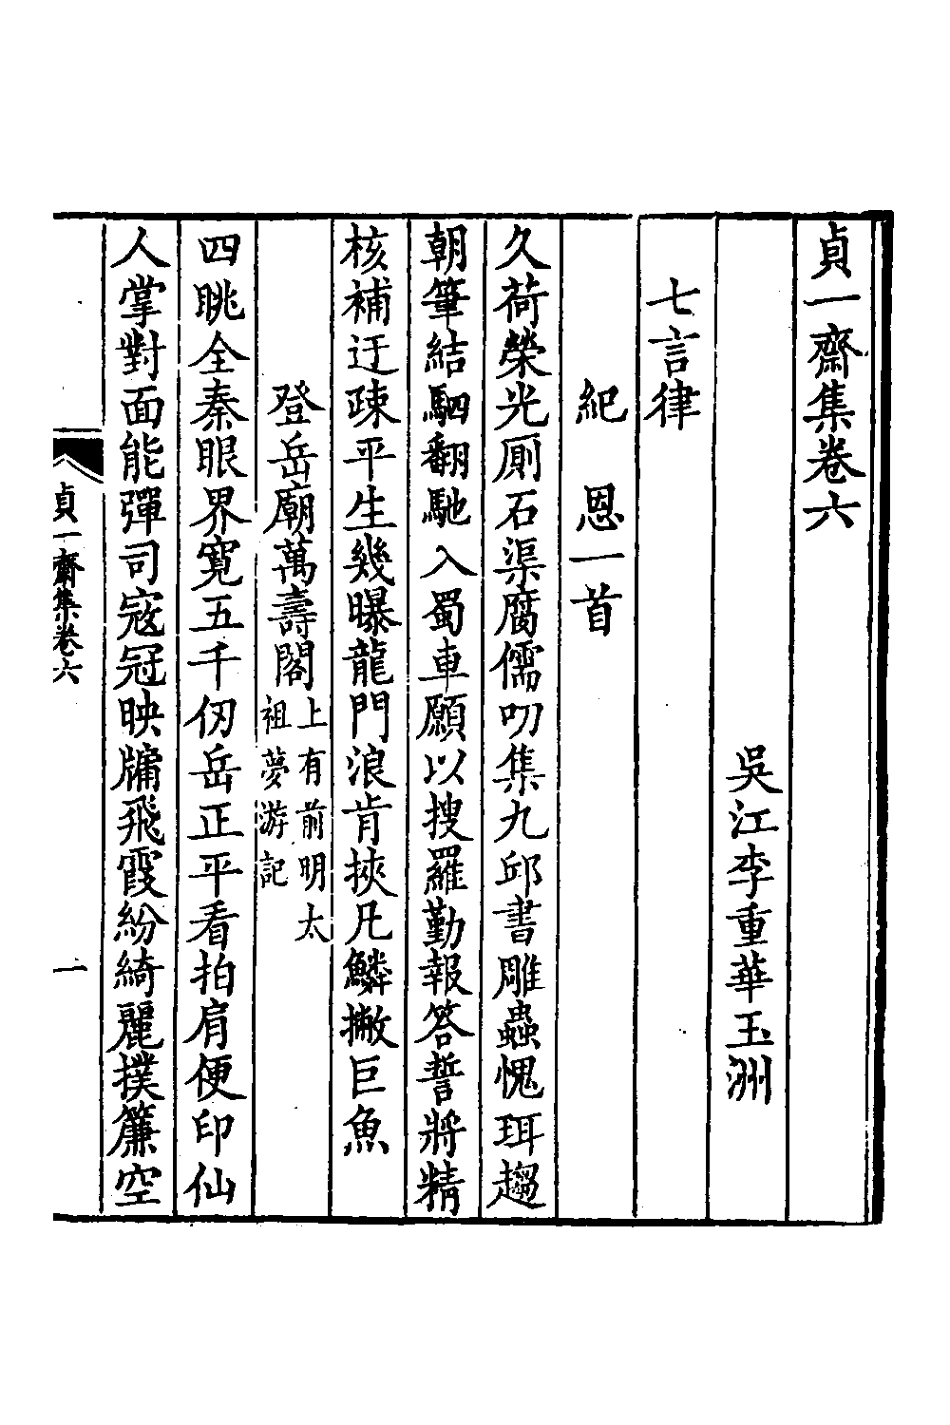 貞一齋集卷六
吳江李重華玉洲
七言律
紀　恩一首
久荷榮光厠石渠腐儒叨集九邱書雕蟲愧珥趨
朝筆結駟翻馳入蜀車願以搜羅勤報答誓將精
核補迂疎平生幾曝龍門浪肯挾凡鱗撇巨魚
登岳廟萬壽閣上有前明太
祖夢游記
四眺全秦眼界寬五千仞岳正平看拍肩便印仙
人掌對面能彈司寇冠映牗飛霞紛綺麗撲簾空
貞一齋集卷六
一